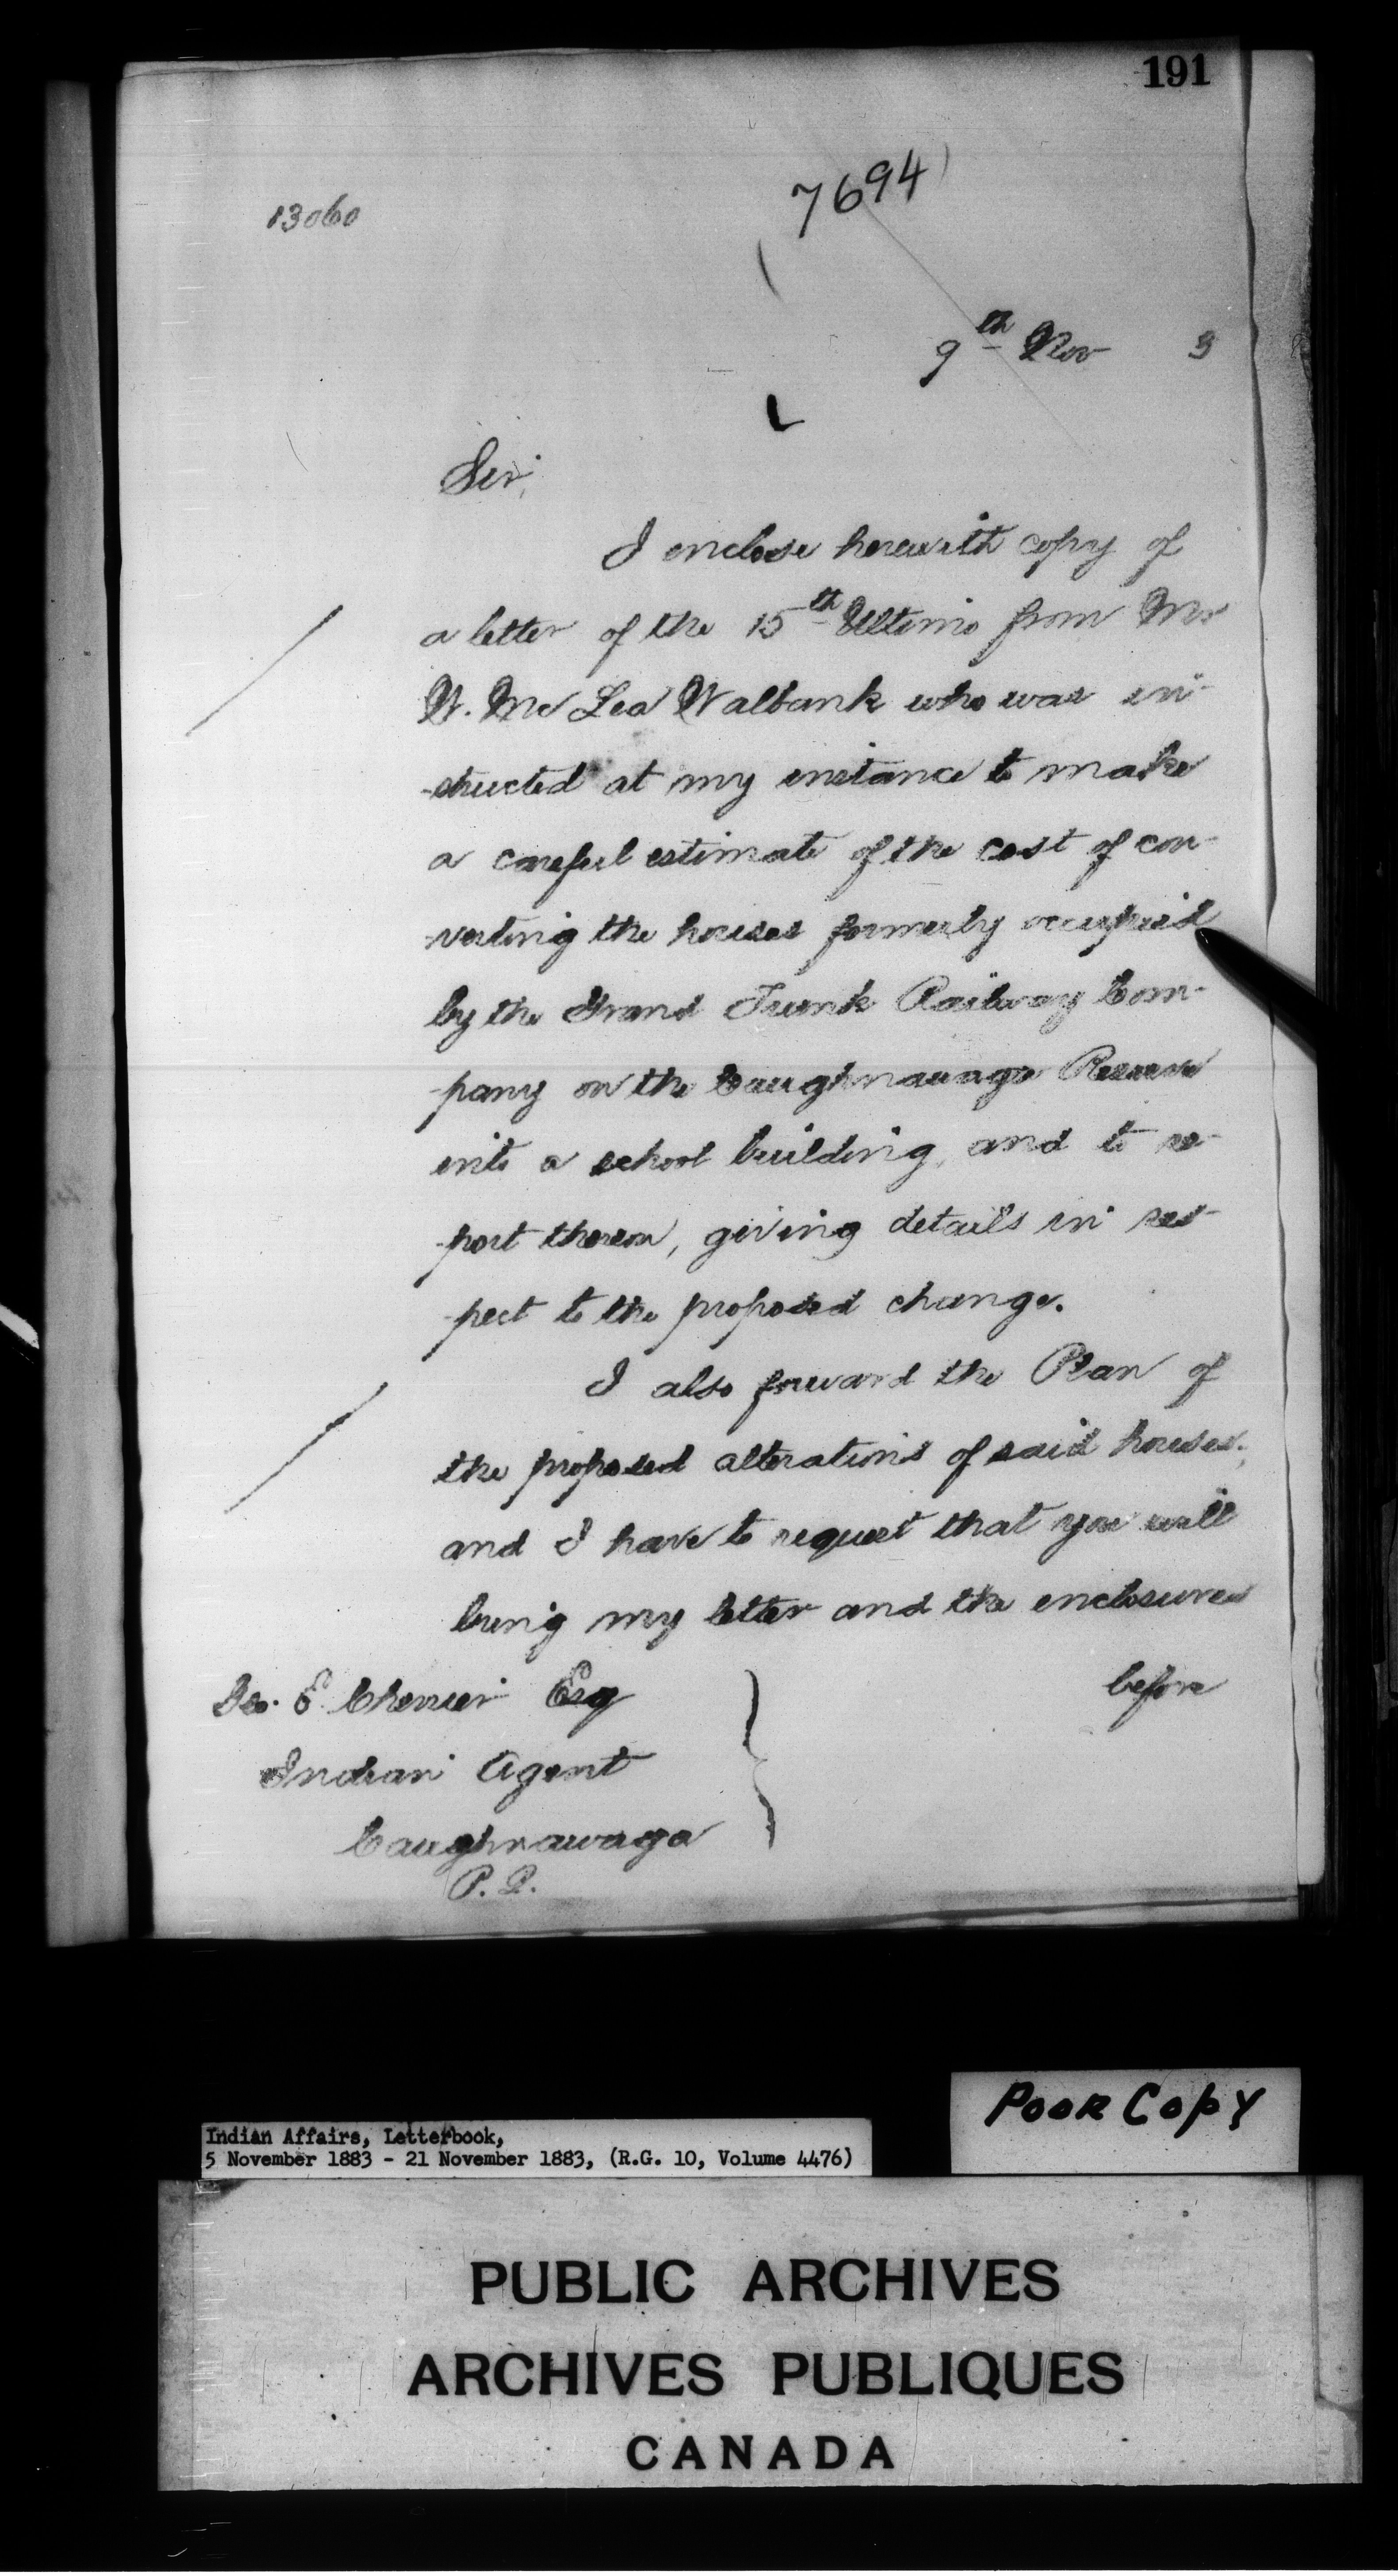 191
7694
13060
9th Nov 3
Sir,
I enclose herewith copy of
a letter of the 15th Ultimo from Mr
W. Mc Lea Walbank who was in-
-structed at my instance to make
a careful estimate of the cost of con-
-verting the houses formerly occupied
by the Grand Trunk Railway Com-
-pany on the Caughnawaga Reserve
into a school building, and to re-
-port thereon, giving details in res-
-pect to the proposed change.
I also forward the Plan of
the proposed alterations of said houses,
and I have to request that you will
bring my letter and the enclosures
before
Geo. E Cherrier Esq
Indian Agent
Caughnawaga
P.Q.
Poor Copy
Indian Affairs, Letterbook,
5 November 1883 - 21 November 1883, (R.G. 10, Volume 4476)
PUBLIC ARCHIVES
ARCHIVES PUBLIQUES
CANADA